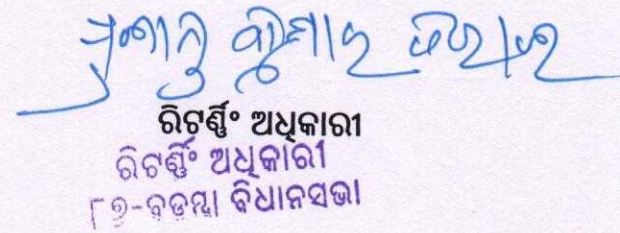 ରିଟର୍ଣ୍ଣିଂ ଅଧିକାରୀ
ରିଟର୍ଣ୍ଣିଂ ଅଧିକାରୀ
୮୭-ବଡ଼ମ୍ବା ବିଧାନସଭା